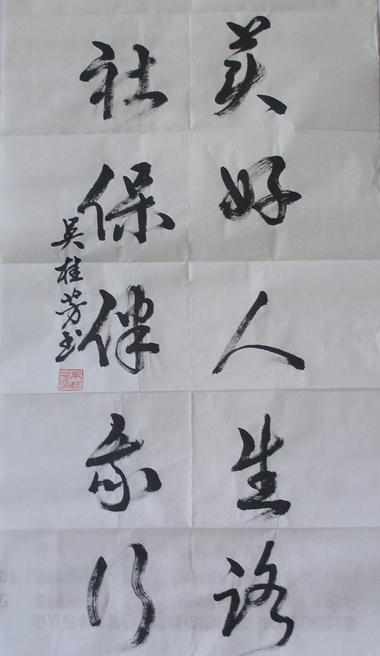 美好人生路
社保伴我行
吴桂芳书